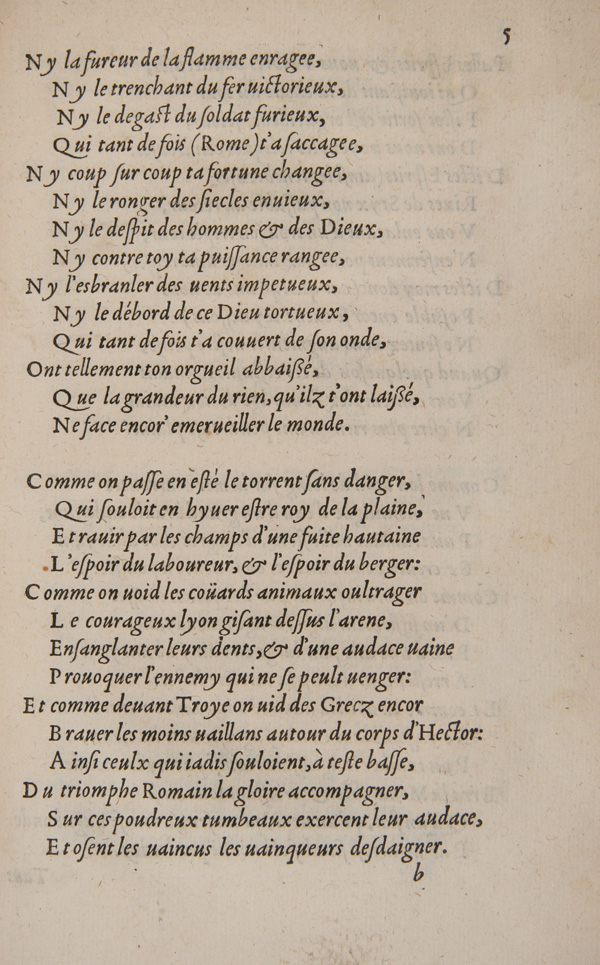 5
Ny la fureur de la flamme enragee,
Ny le trenchant du fer uictorieux,
Ny le degast du ſoldat furieux,
Qui tant de fois (Rome) t'a ſaccagee,
Ny coup ſur coup ta fortune changee,
Ny le ronger des ſiecles enuieux,
Ny le deſpit des hommes & des Dieux,
Ny contre toy ta puiſſance rangee,
Ny l'esbranler des uents impetueux,
Ny le débord de ce Dieu tortueux,
Qui tant de fois t'a couuert de ſon onde,
Ont tellement ton orgueil abbaißé,
Que la grandeur du rien, qu'ilz t'ont laißé,
Ne face encor' emerueiller le monde.

Comme on paſſe en eſté le torrent ſans danger,
Qui ſouloit en hyuer eſtre roy de la plaine,
Et rauir par les champs d'une fuite hautaine
L'eſpoir du laboureur, & l'eſpoir du berger:
Comme on uoid les coüards animaux oultrager
Le courageux lyon giſant deſſus l'arene,
Enſanglanter leurs dents, & d'une audace uaine
Prouoquer l'ennemy qui ne ſe peult uenger:
Et comme deuant Troye on uid des Grecz encor
Brauer les moins uaillans autour du corps d'Hector:
Ainſi ceulx qui iadis ſouloient, à teſte baſſe,
Du triomphe Romain la gloire accompagner,
Sur ces poudreux tumbeaux exercent leur audace,
Et oſent les uaincus les uainqueurs deſdaigner.
b